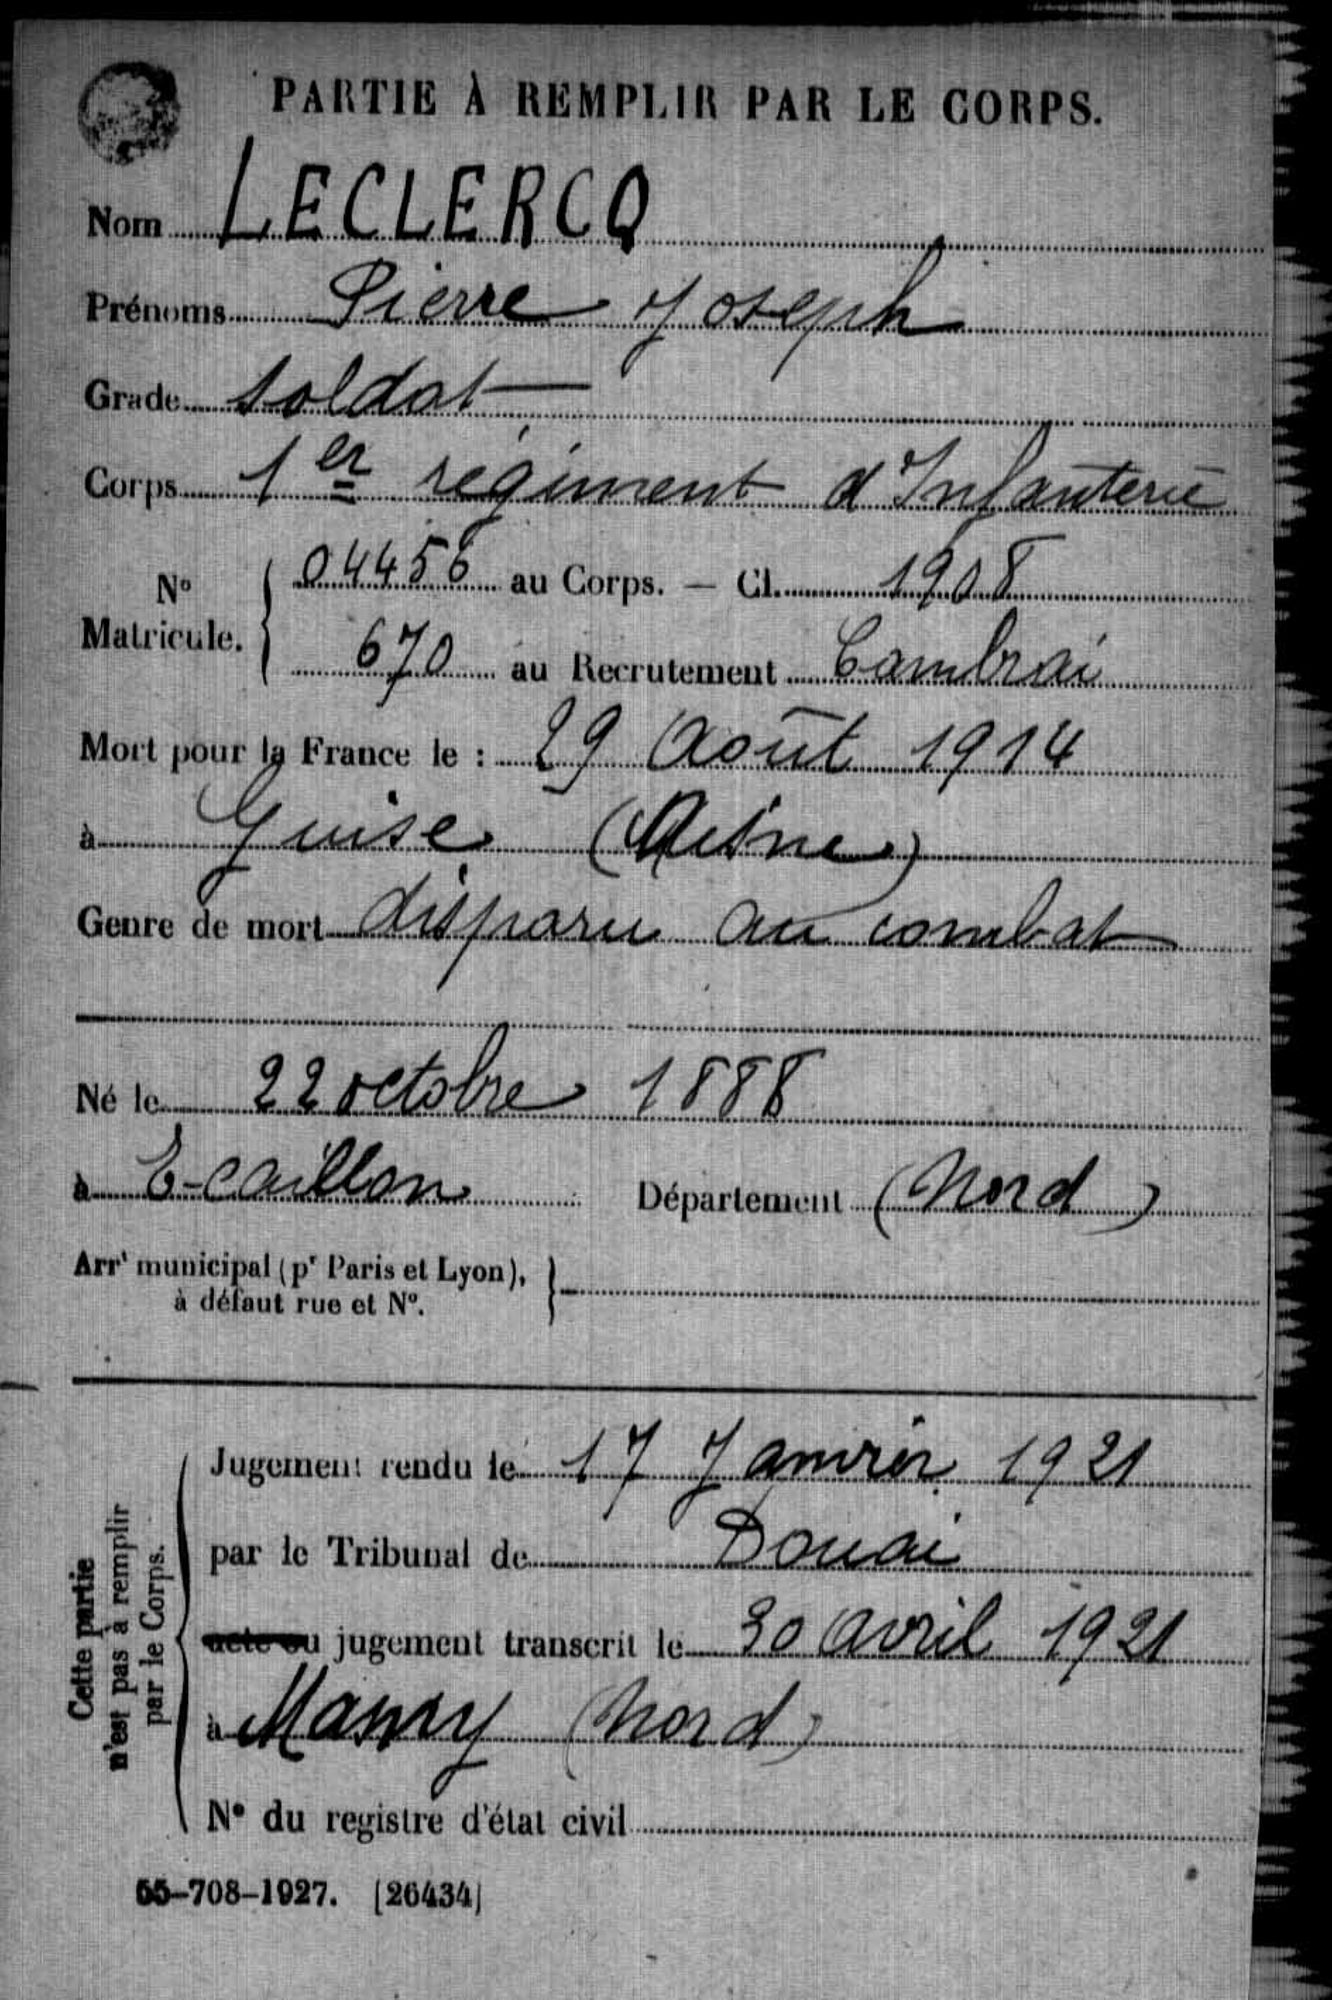 PARTIE À REMPLIR PAR LE CORPS.
Nom LECLERCQ
Prénoms Pierre Joseph
Grade soldat
Corps 1er régiment d'Infanterie
No Matricule. 04456 au Corps. — Cl. 1908
670 au Recrutement Cambrai
Mort pour la France le : 29 Août 1914
à Guise (Aisne)
Genre de mort disparu au combat
Né le 22 octobre 1888
à Ecaillon Département (Nord)
Arrt municipal (pr Paris et Lyon),
à défaut rue et No.
Cette partie
n'est pas à remplir
par le Corps.
Jugement rendu le 17 Janvier 1921
par le Tribunal de Douai
acte ou jugement transcrit le 30 avril 1921
à Masny (Nord)
No du registre d'état civil
55-708-1927. [26434]